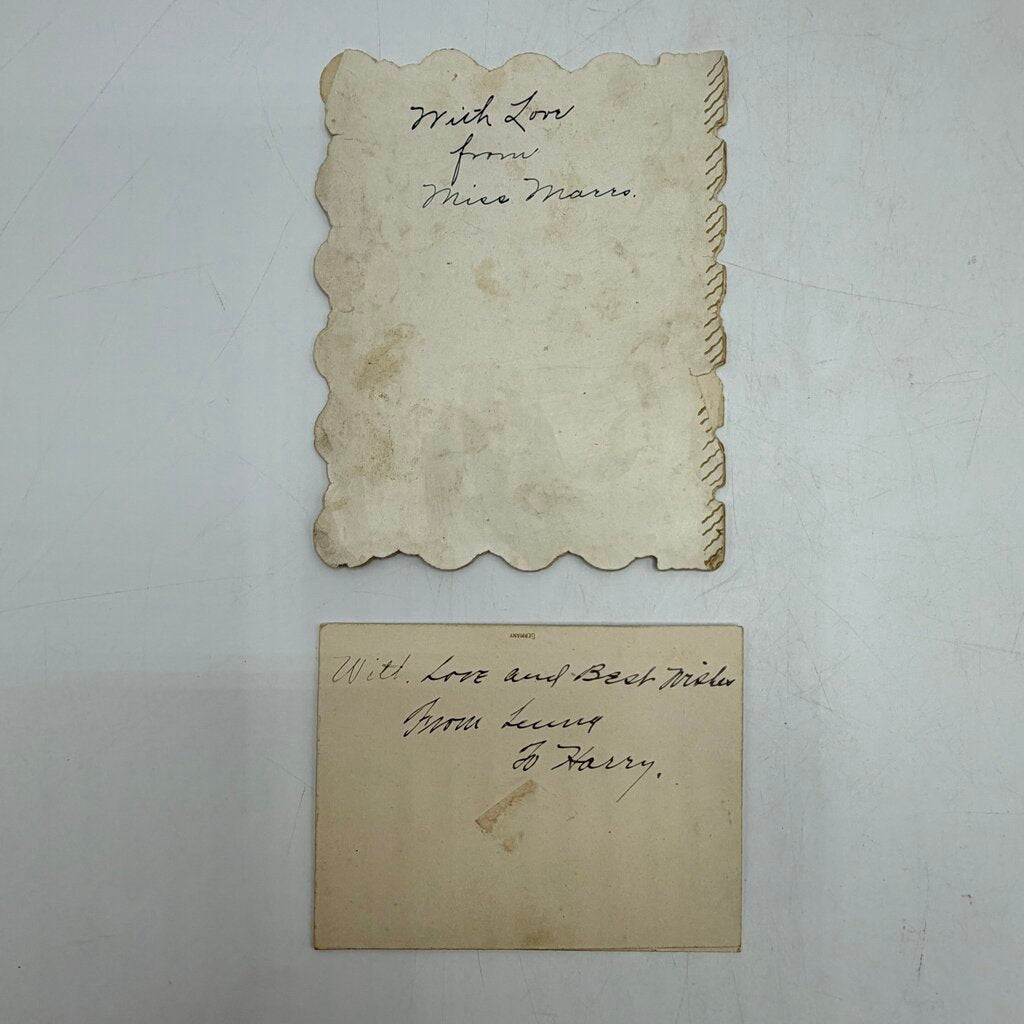 With Love
from
Miss Marrs.
GERMANY
With Love and Best Wishes
From
To Harry.